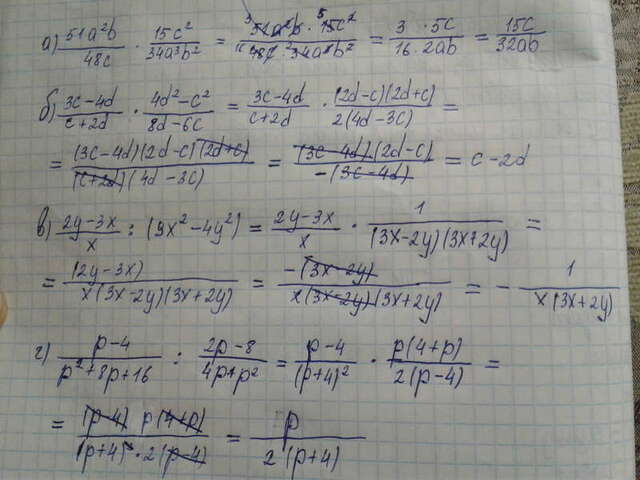 а) 51a²b/48c · 15c²/34a³b² = 51a²b · 15c²/48c · 34a³b² = 3 · 5c/16 · 2ab = 15c/32ab
б) 3c-4d/c+2d · 4d²-c²/8d-6c = 3c-4d/c+2d · (2d-c)(2d+c)/2(4d-3c) =
= (3c-4d)(2d-c)(2d+c)/(c+2d)(4d-3c) = (3c-4d)(2d-c)/-(3c-4d) = c-2d
в) 2y-3x/x : (9x²-4y²) = 2y-3x/x · 1/(3x-2y)(3x+2y) =
= (2y-3x)/x(3x-2y)(3x+2y) = -(3x-2y)/x(3x-2y)(3x+2y) = - 1/x(3x+2y)
г) p-4/p²+8p+16 : 2p-8/4p+p² = p-4/(p+4)² · p(4+p)/2(p-4) =
= (p-4) p(4+p)/(p+4)² · 2(p-4) = p/2(p+4)